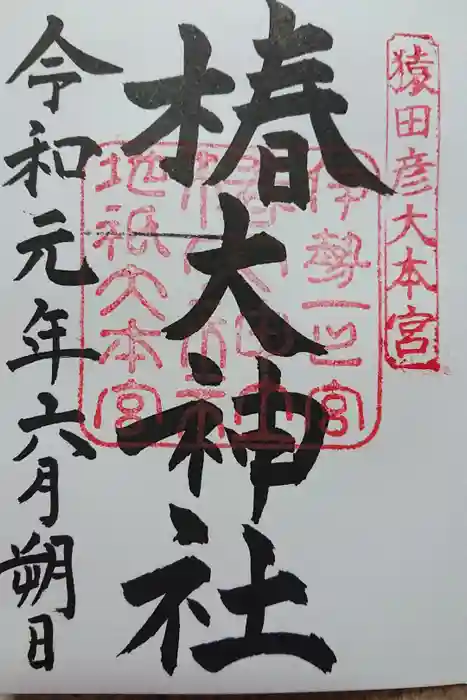 猿田彦大本宮
椿大神社
伊勢一之宮
地祇大本宮
令和元年六月朔日